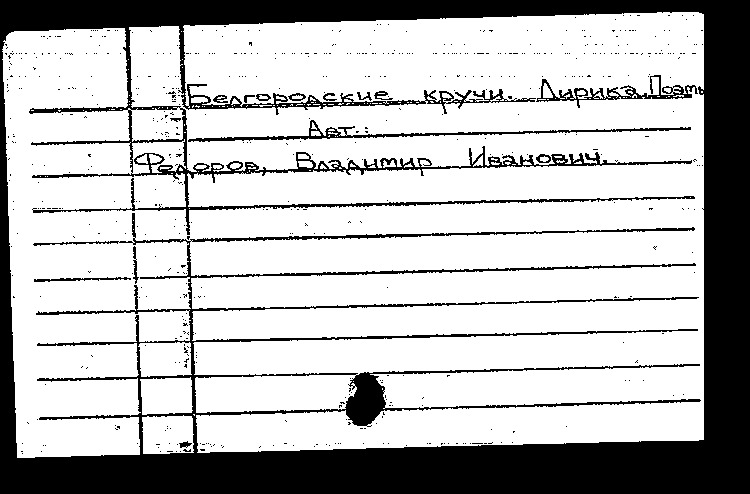 Белгородские кручи. Лирика. Поэмы
Авт.:
Федоров, Владимир Иванович.